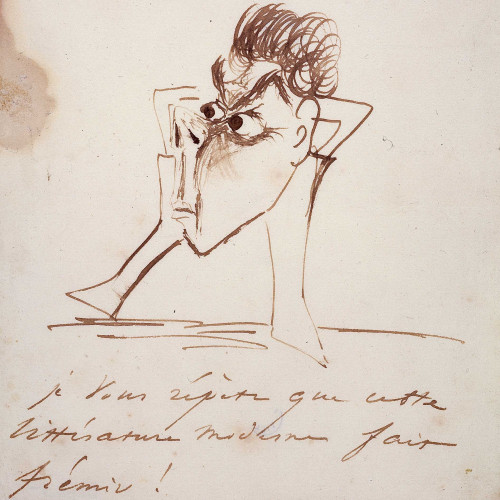 je vous répète que cette
littérature moderne fait
frémir !